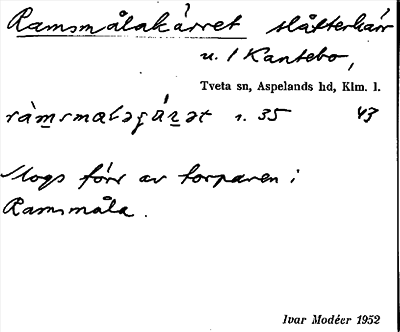 Ramsmålakärret slåtterkärr
u. / Kantebo,
Tveta sn, Aspelands hd, Klm. l.
35 43
Slogs förr av torparen i
Ramsmåla.
Ivar Modéer 1952